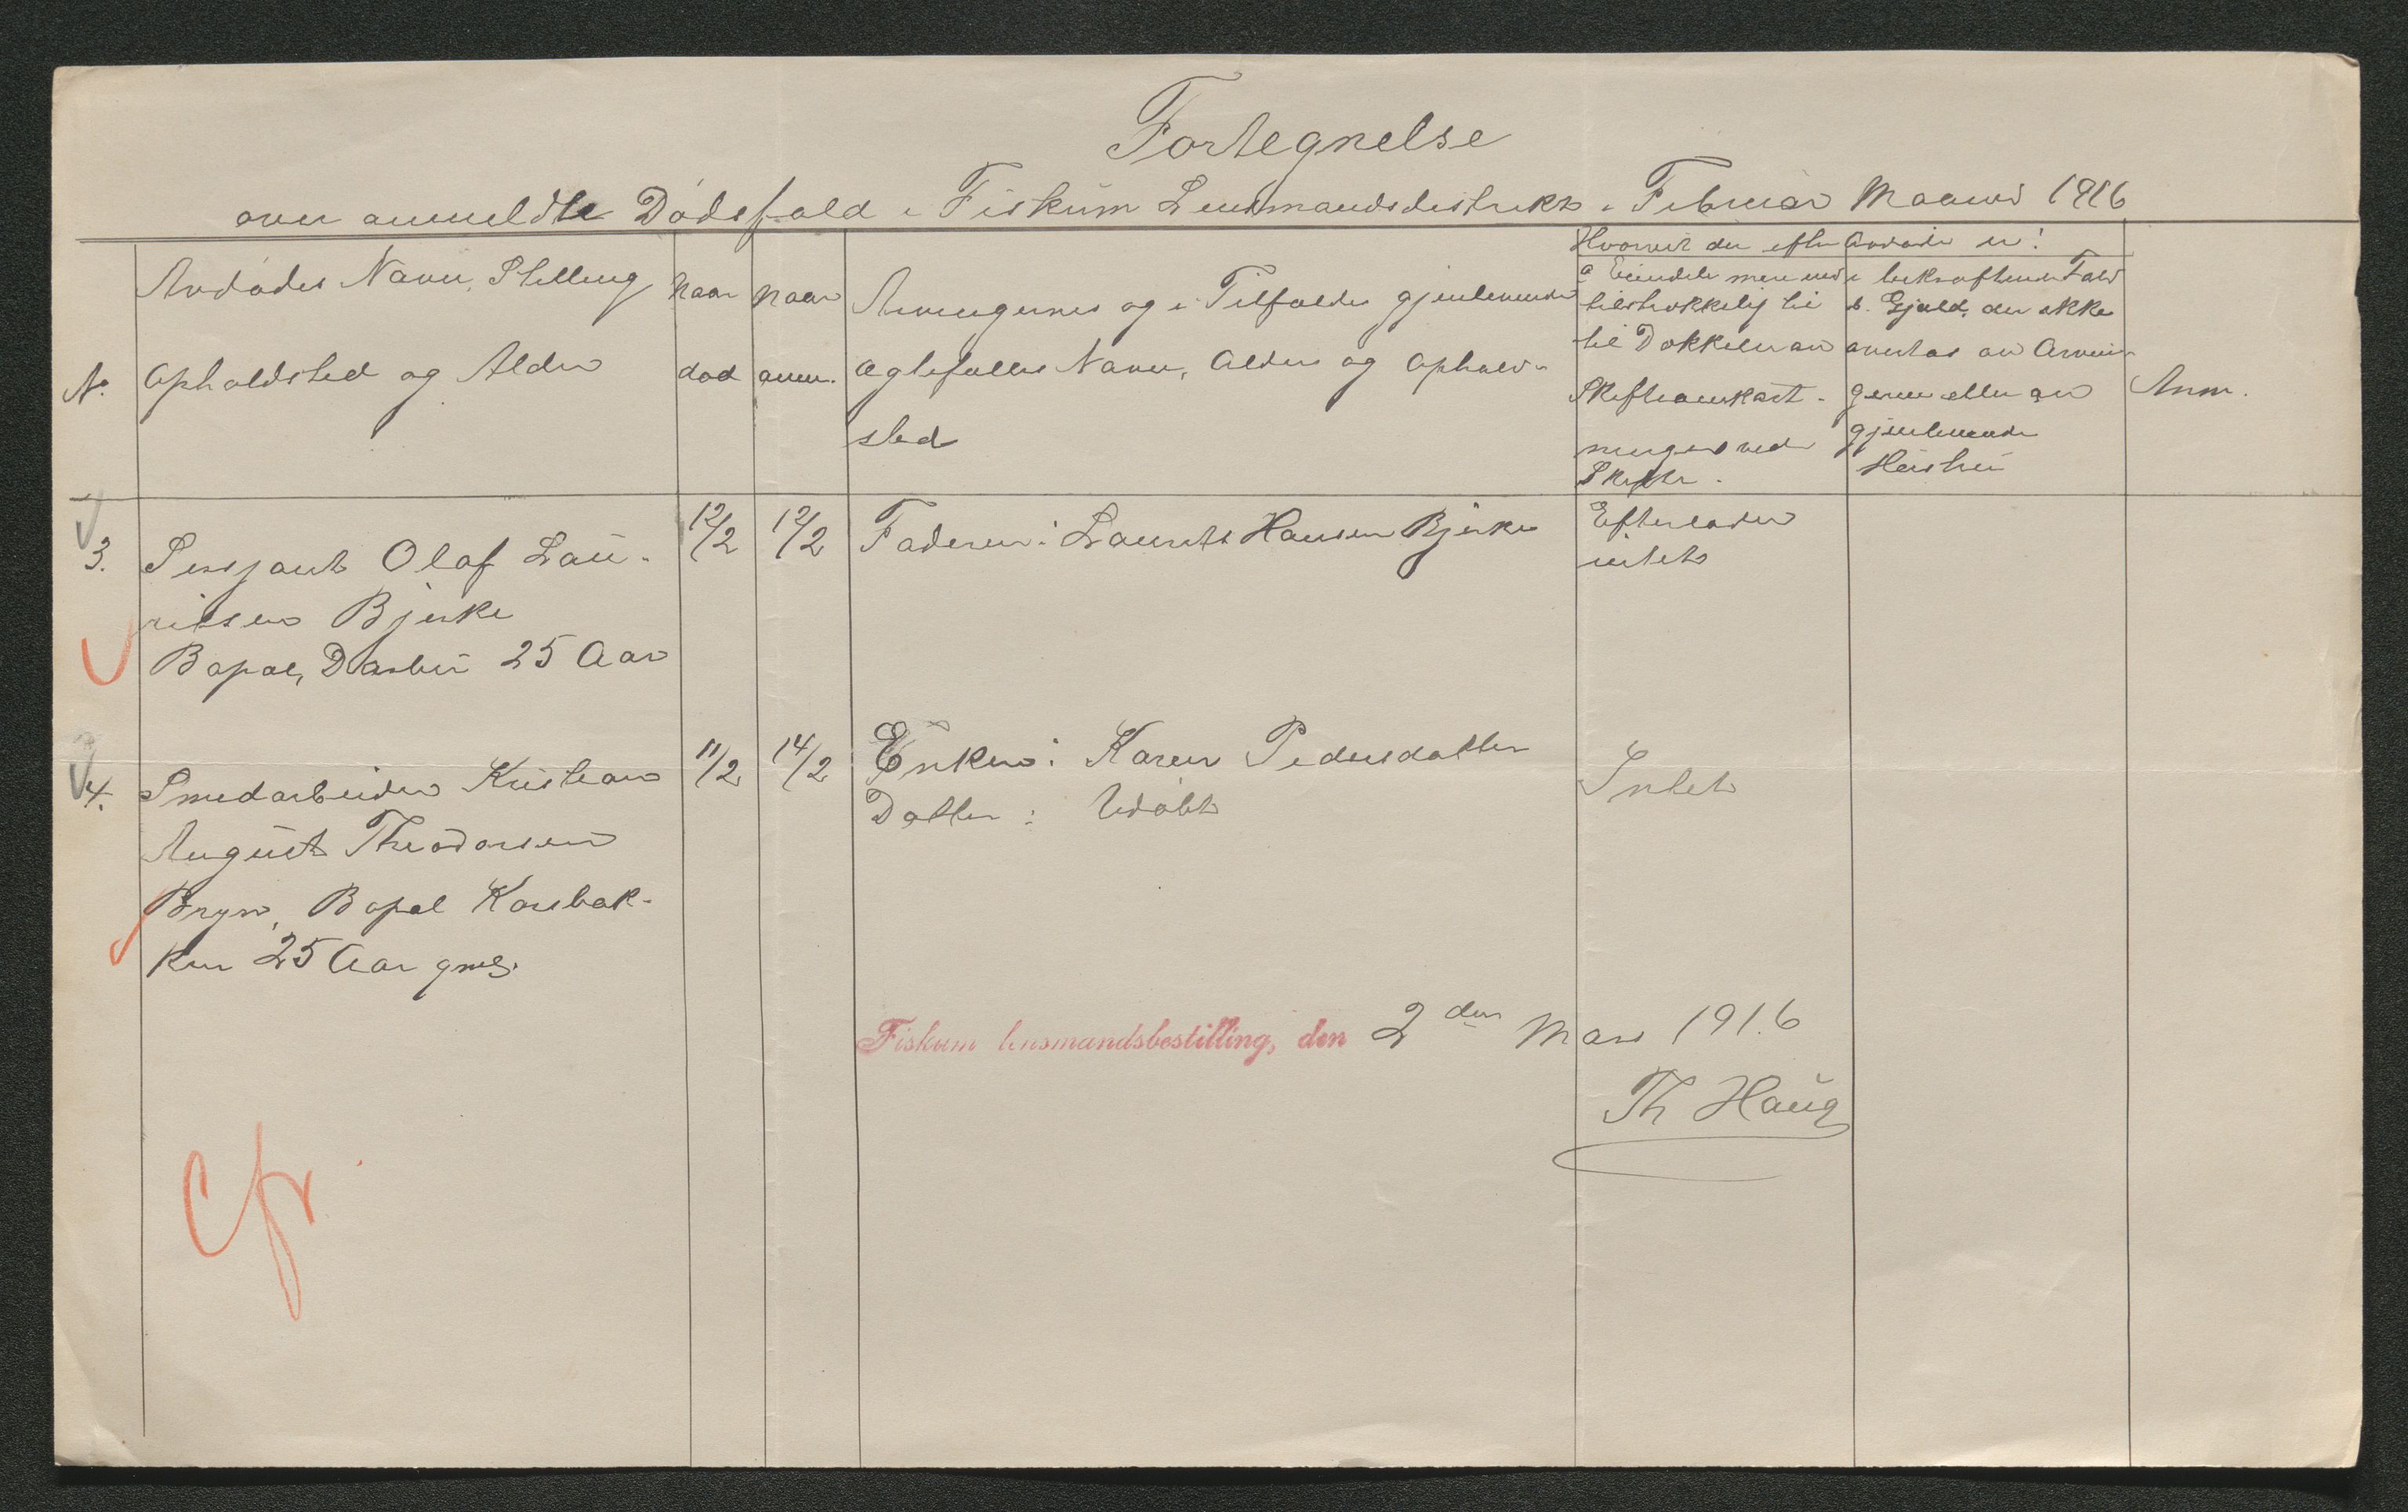 Fortegnelse
over anmeldte Dødsfald i Fiskum Lensmandsdistrikt i Februar Maaned 1916
No
Avdødes Navn, Stilling
Opholdsted og Alder
Naar
død
Naar
anm.
Arvingernes og i Tilfælde gjenlevende
Ægtefælles Navn, Alder og Ophold-
sted
Hvorvidt der efter Avdøde er:
a Eiendele mere end
tilstrækkelig til
til Dækkelse av
Skifteomkost-
ninger ved
Skifte.
i bekræftende Fald
b. Gjæld, der ikke
overtas av Arvin-
gerne eller av
gjenlevende
Hustru
Anm.
3.
Sersjant Olaf Lau-
ritsen Bjerke
Bopæl, Darbu 25 Aar
12/2
12/2
Faderen: Laurits Hansen Bjerke
Efterlader
intet
4.
Smedarbeider Kristian
August Theodorsen
Bryn, Bopæl Korsbak-
ken 25 Aar gml.
11/2
14/2
Enken: Karen Pedersdatter
Datter: Udøbt
Intet
Fiskum lensmandsbestilling, den 2den Mars 1916
Th Haug
Cfr.